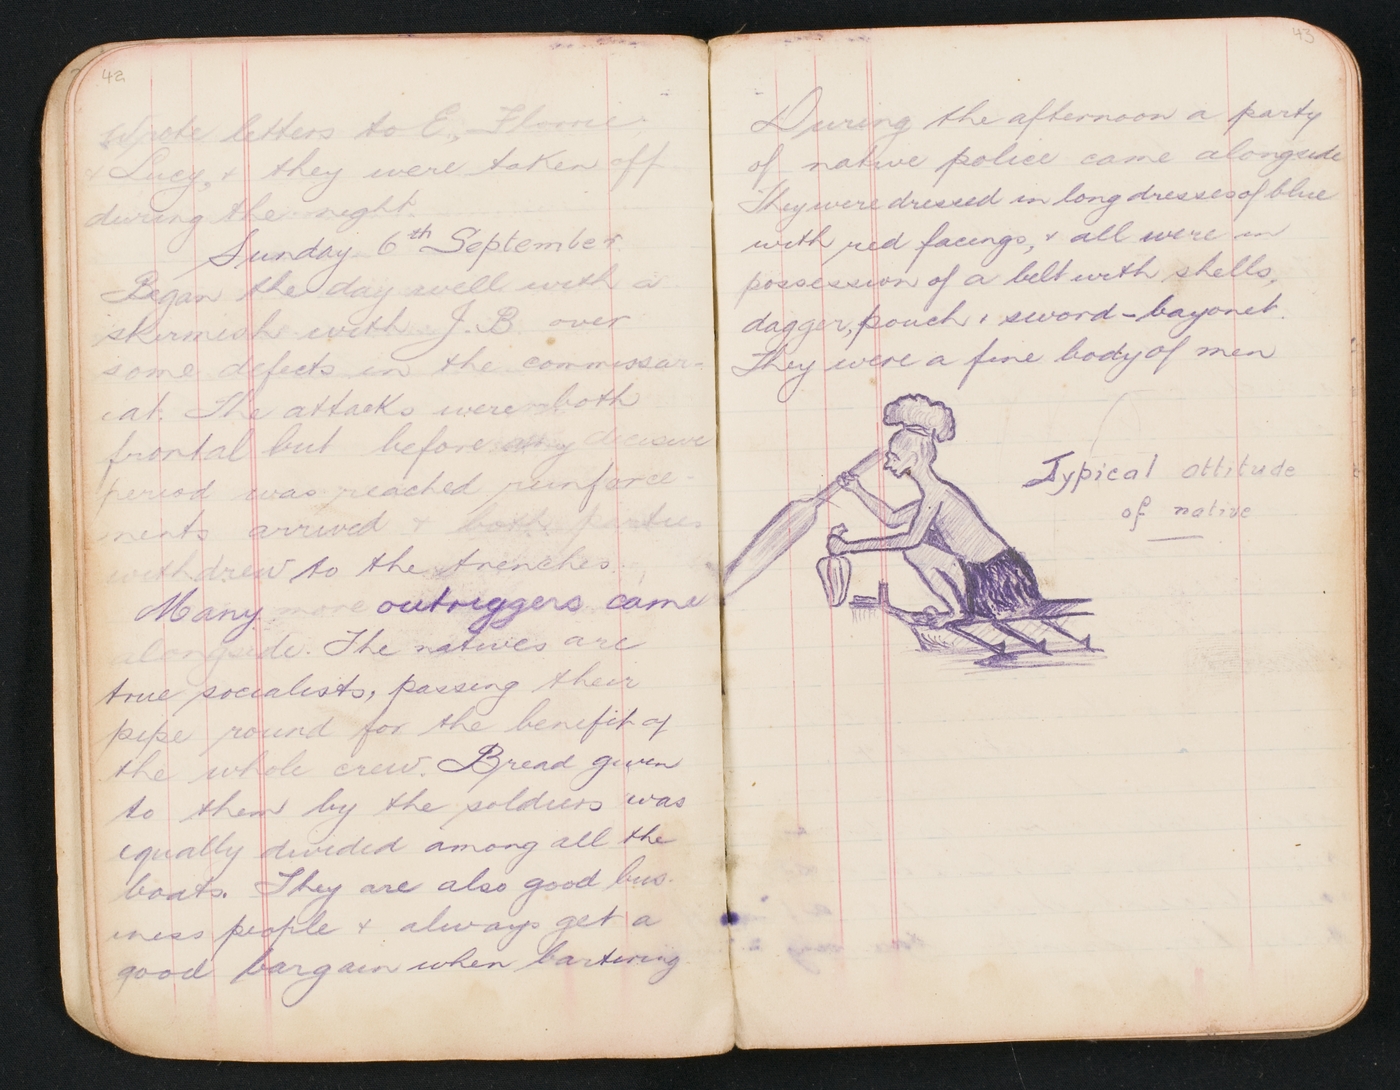 42
Wrote letters to E., Florrie
& Lucy, & they were taken off
during the night.
Sunday 6th September
Began the day well with a
skirmish with J.B. over
some defects in the commissar-
iat. The attacks were both
frontal but before any decisive
period was reached reinforce-
ments arrived & both parties
withdrew to the trenches.
Many more outriggers came
alongside. The natives are
true socialists, passing their
pipe round for the benefit of
the whole crew. Bread given
to them by the soldiers was
equally divided among all the
boats. They are also good bus-
iness people & always get a
good bargain when bartering
43
During the afternoon a party
of native police came alongside
They were dressed in long dresses of blue
with red facings, & all were in
possession of a belt with shells,
dagger, pouch & sword-bayonet.
They were a fine body of men
Typical attitude
of native